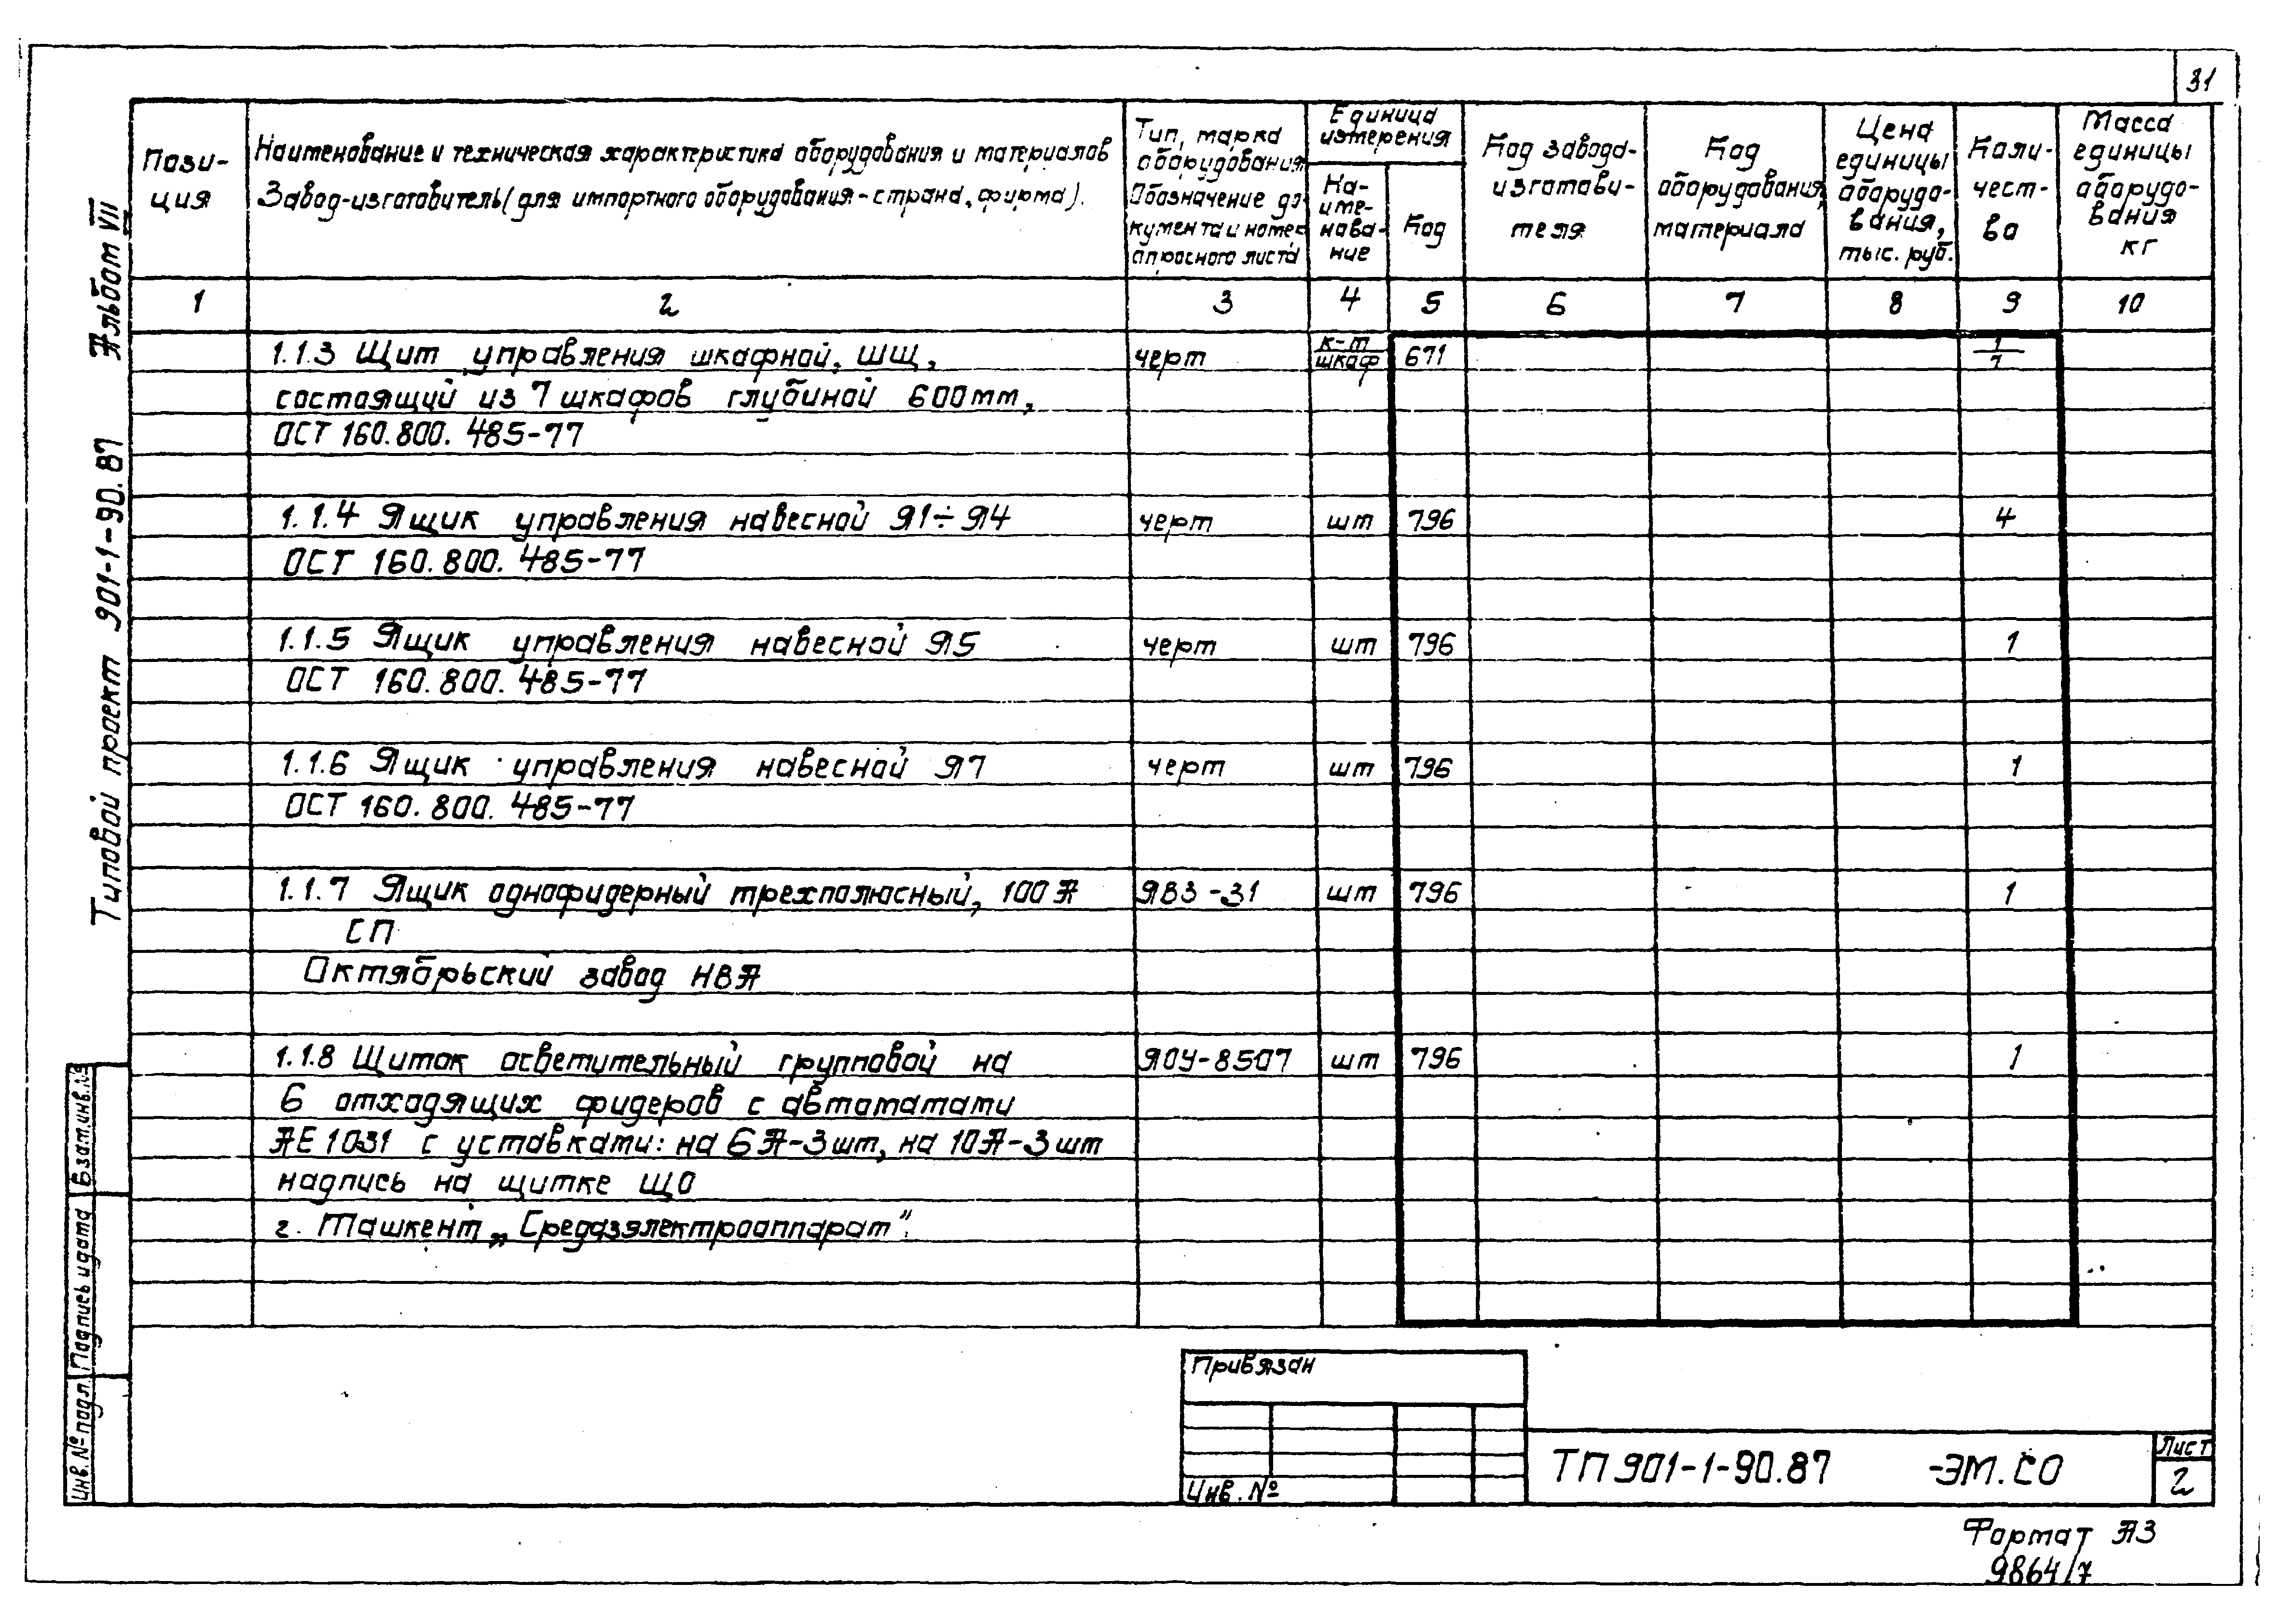 31
Пози-
ция
Наименование и техническая характеристика оборудования и материалов
Завод-изготовитель (для импортного оборудования - страна, фирма).
Тип, марка
оборудования
Обозначение до-
кумента и номер
опросного листа
Единица
измерения
На-
име-
нова-
ние
Код
Код завода-
изготови-
теля
Код
оборудования,
материала
Цена
единицы
оборудо-
вания,
тыс. руб.
Коли-
чест-
во
Масса
единицы
оборудо-
вания
кг
1 2 3 4 5 6 7 8 9 10
1.1.3 Щит управления шкафной, ШЩ, черт к-т/шкаф 671 1/7
состоящий из 7 шкафов глубиной 600мм,
ОСТ 160.800.485-77
1.1.4 Ящик управления навесной Я1÷Я4 черт шт 796 4
ОСТ 160.800.485-77
1.1.5 Ящик управления навесной Я5 черт шт 796 1
ОСТ 160.800.485-77
1.1.6 Ящик управления навесной Я7 черт шт 796 1
ОСТ 160.800.485-77
1.1.7 Ящик однофидерный трехполюсный, 100А ЯВ3-31 шт 796 1
СП
Октябрьский завод НВА
1.1.8 Щиток осветительный групповой на ЯОУ-8507 шт 796 1
6 отходящих фидеров с автоматами
АЕ1031 с уставками: на 6А-3шт, на 10А-3шт
надпись на щитке ЩО
г. Ташкент „Средазэлектроаппарат".
Типовой проект 901-1-90.87 Альбом VII
Инв.№подл. Подпись и дата Взам.инв.№
Привязан
Инв. №
ТП 901-1-90.87 -ЭМ.СО
Лист
2
Формат А3
9864/7